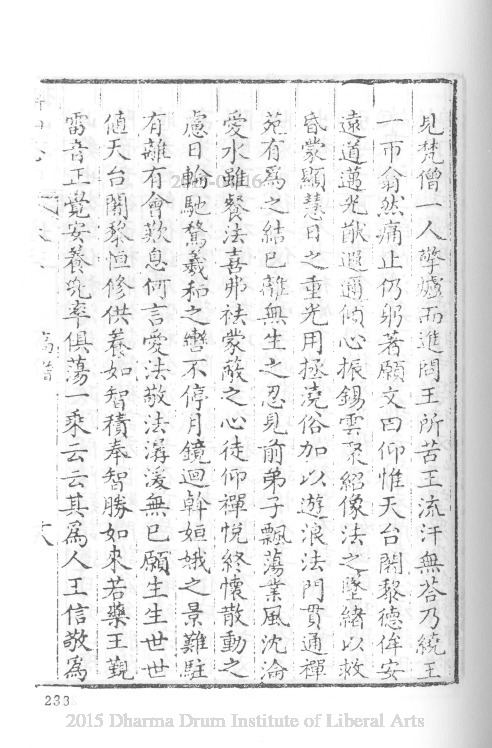 見梵僧一人擎爐而進問王所苦王流汗無荅乃繞王
一帀翕然痛止仍躬著願文曰仰惟天台闍黎德侔安
遠道邁光猷遐邇傾心振錫雲聚紹像法之墜緒以救
昏蒙顯慧日之重光用拯澆俗加以遊浪法門貫通禪
苑有爲之結已離無生之忍見前弟子飄蕩業風沈淪
愛水雖餐法喜弗袪蒙蔽之心徒仰禪悅終懷散動之
慮日輪馳騖羲和之轡不停月鏡迴斡姮娥之景難駐
有離有會歎息何言愛法敬法潺湲無已願生生世世
値天台闍黎恒修供養如智積奉智勝如來若藥王覲
雷音正覺安養兜率俱蕩一乘云云其爲人王信敬爲
233
2015 Dharma Drum Institute of Liberal Arts